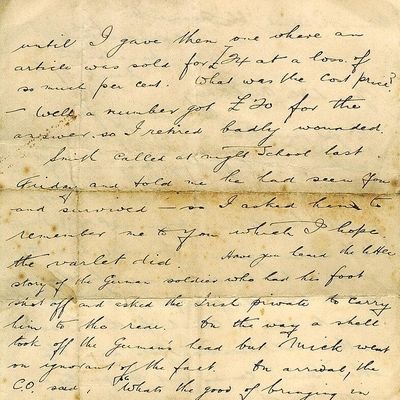 until I gave them one where an
article was sold for £24 at a loss of
so much per cent. What was the cost price?
– Well a number got £20 for the
answer, so I retired badly wounded.
Smith called at night School last
Friday and told me he had seen you
and survived – so I asked him to
remember me to you which I hope
the varlet did. Have you heard the little
story of the German soldier who had his foot
shot off and asked the Irish private to carry
him to the rear. On the way a shell
took off the German's head but Mick went
on ignorant of the fact. On arrival, the
C.O. said, "Whats the good of bringing in